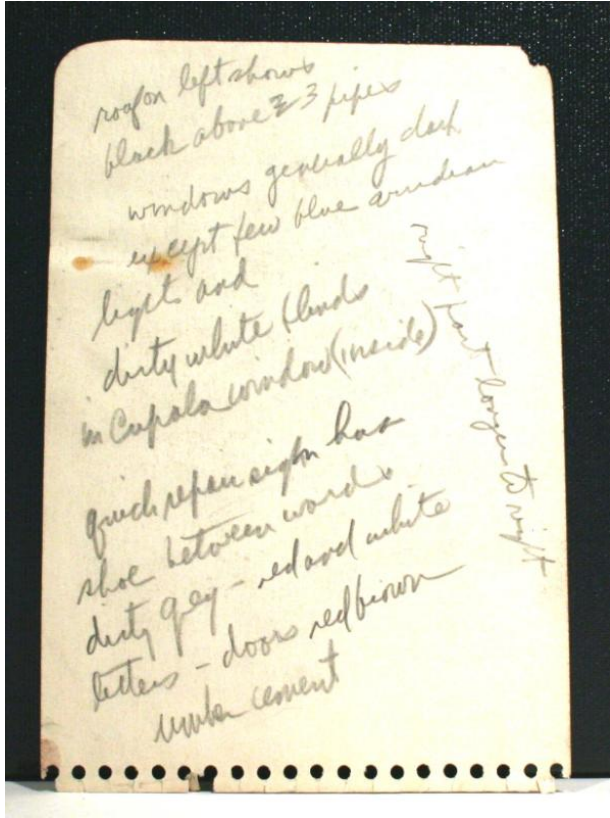 roof on left shows
black above 3 pipes
windows generally dark
except few blue
light and
dirty white blinds
in Cupola window (inside)
quick repair sign has
shoe between words
dirty grey – red and white
letters – doors red brown
umber cement
right part longer to right